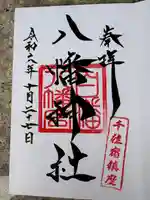 奉拝
八幡神社
令和六年十月二十七日
千住宿鎮座